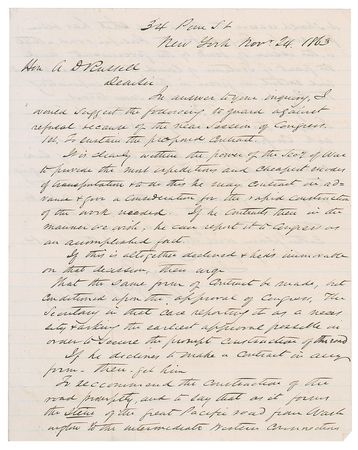 34 Pine St
New York Nov. 24. 1863
Hon. A D Russell
Dear Sir
In answer to your inquiry, I
would suggest the following to guard against
refusal because of the near Session of Congress.
1st. To sustain the proposed Contract.
It is clearly within the power of the Secy of War
to provide the most expeditious and cheapest modes
of transportation & to do this he may contract in ad-
vance & give a consideration for the rapid construction
of the work needed. If he contracts then in the
manner we wish, he can report it to Congress as
an accomplished fact.
If this is altogether declined & he is immovable
on that decision, then urge
That the same form of Contract be made, not
conditioned upon the approval of Congress, The
Secretary in that case reporting it as a neces
sity & asking the earliest approval possible in
order to secure the prompt construction of the road
If he declines to make a contract in any
form. then get him
To reccommend the construction of the
road promptly, and to say that as it forms
the Stem of the great Pacific road from Wash
ington to the intermediate Western Connections